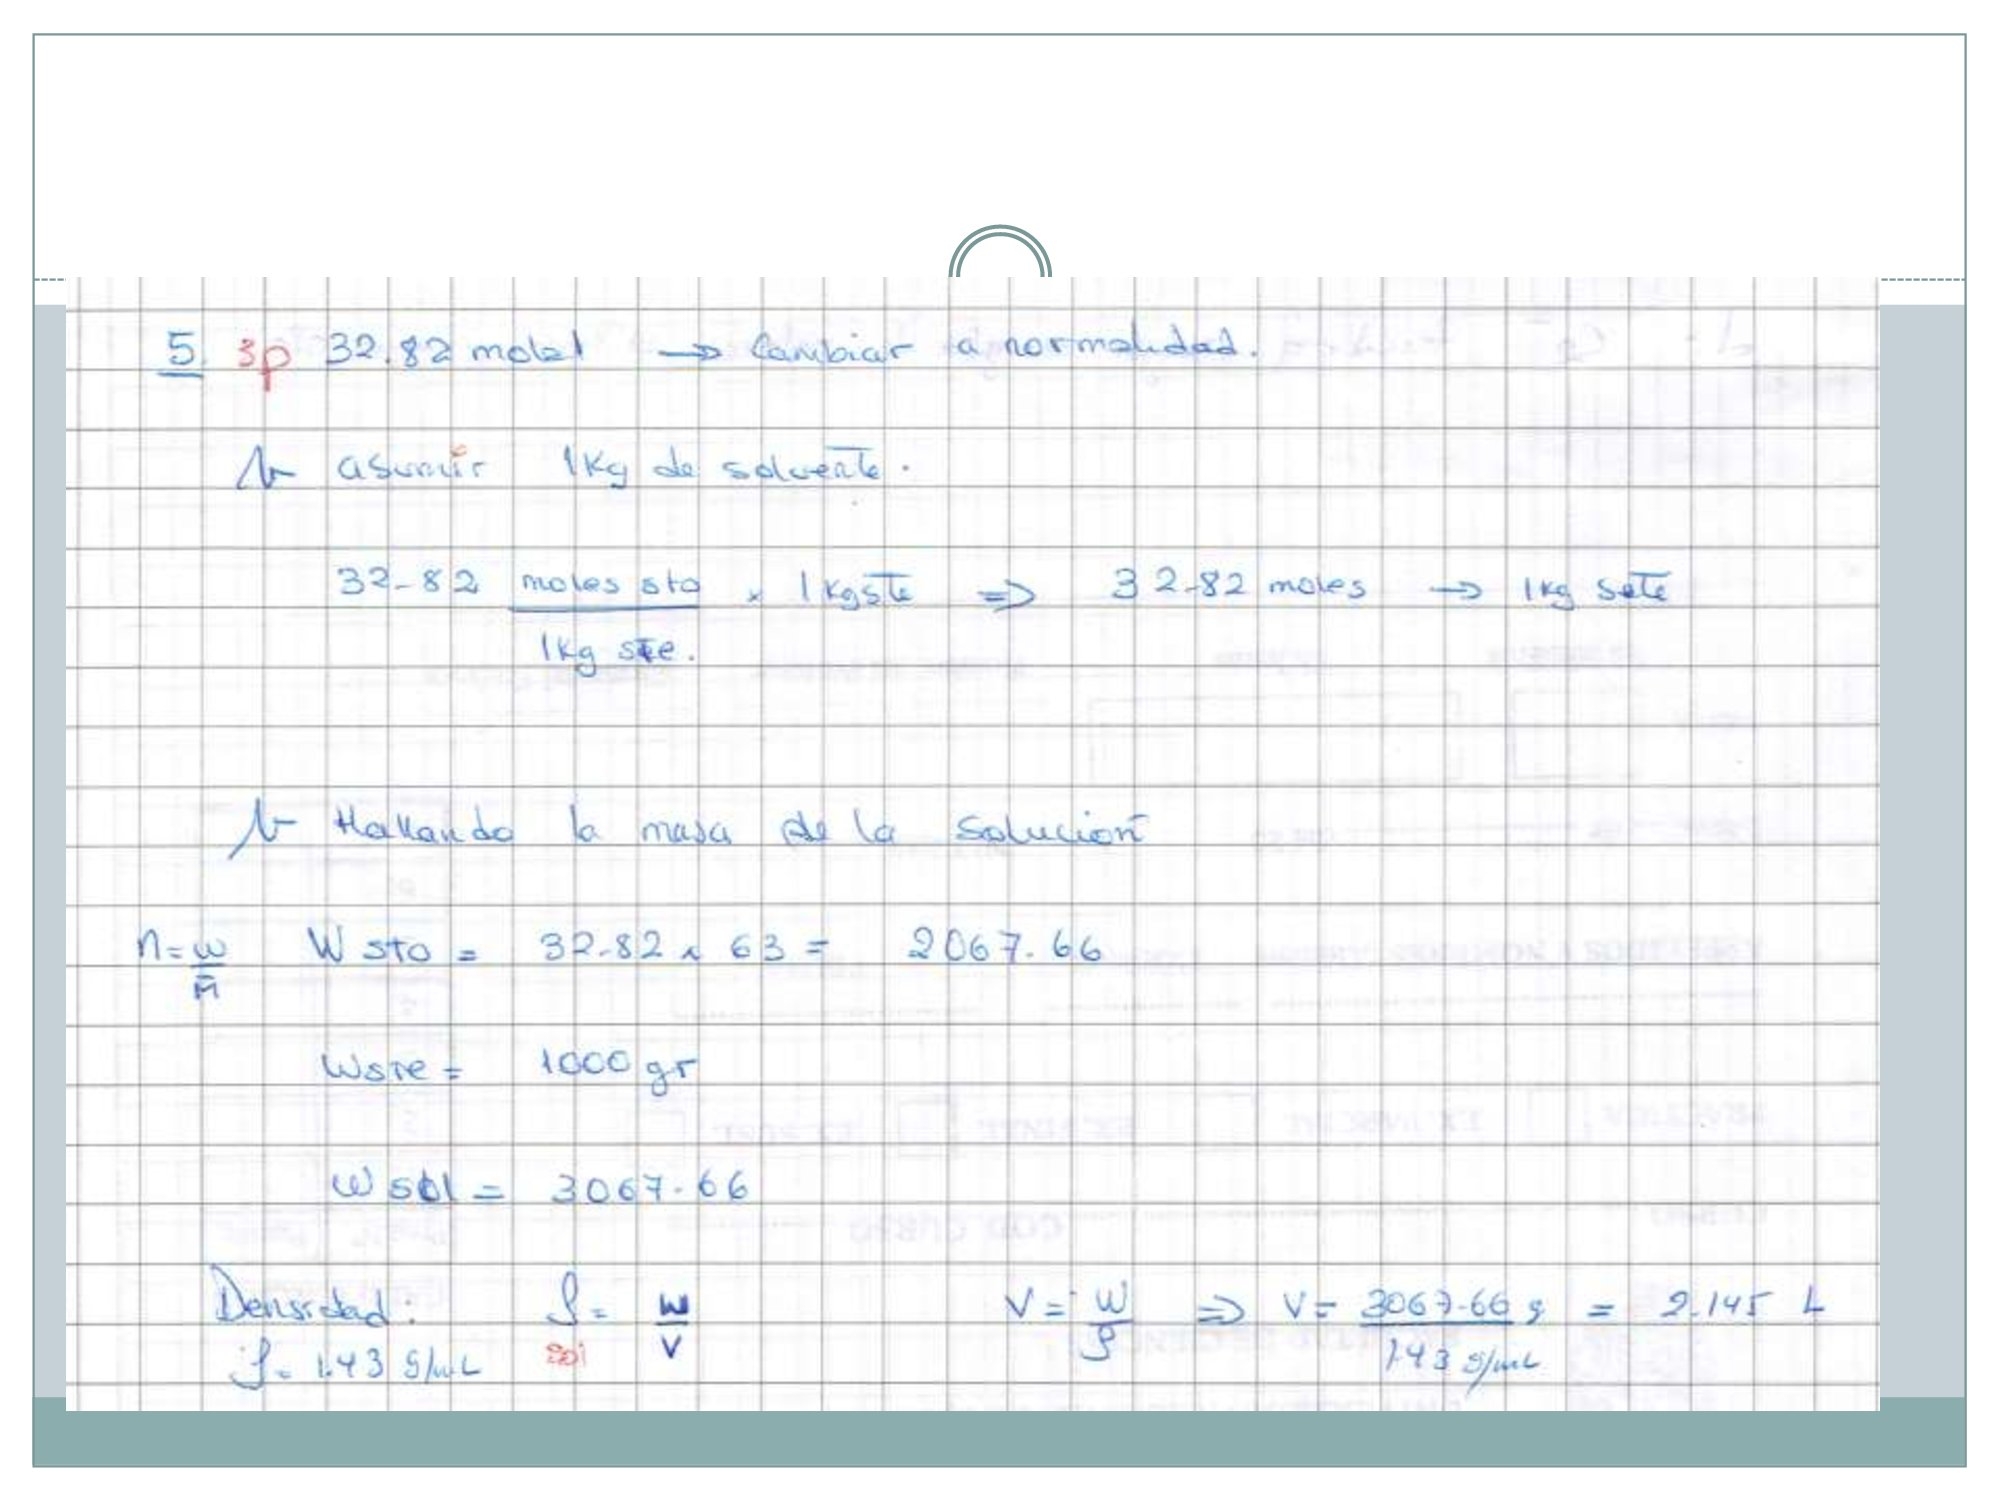 5. 3p 32.82 molal → Cambiar a normalidad.
asumir 1Kg de solvente.
32-82 moles sto x 1Kg ste ⇒ 32-82 moles → 1Kg sete
1Kg ste.
Hallando la masa de la solucion
n = w W sto = 32-82 x 63 = 2067.66
M
Wste = 1000 gr
W sol = 3067.66
Densidad: ρ = w V = W ⇒ V = 3067.66 g = 2.145 L
sol V ρ 1.43 g/mL
ρ = 1.43 g/mL